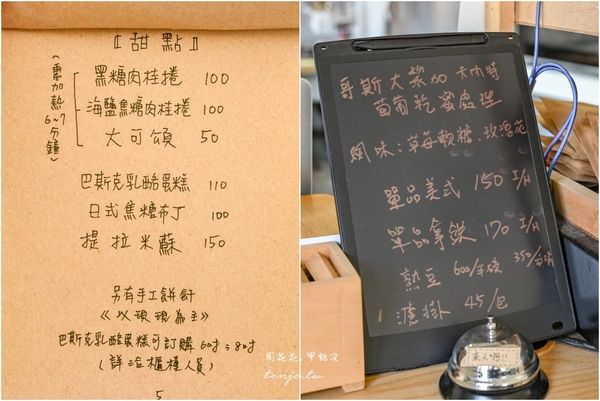 〖甜點〗
(需加熱6~7分鐘)
黑糖肉桂捲 100
海鹽焦糖肉桂捲 100
大可頌 50
巴斯克乳酪蛋糕 110
日式焦糖布丁 100
提拉米蘇 150
另有手工餅飾
《以現場為主》
巴斯克乳酪蛋糕可訂購 6吋、8吋
(詳洽櫃檯人員)
哥斯大黎加 卡內特
葡萄乾蜜處理
風味:草莓軟糖、玫瑰花
單品美式 150 I/H
單品拿鐵 170 I/H
熱豆 600/半磅
濾掛 45/包
周花花,甲飽沒
tenjo.tw